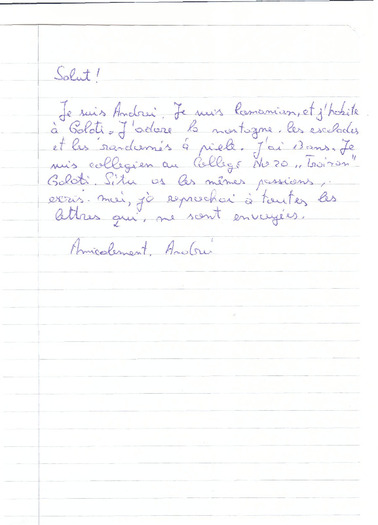 Salut !
Je suis Andrei. Je suis Romanian, et j'habite
à Galati. J'adore la montagne, les escalades
et les randonnés à piele. J'ai 13 ans. Je
suis collégien au Collège No 20 „Traian"
Galati. Si tu as les mêmes passions,
écris-moi, je reprochai à toutes les
lettres qui me sont envoyées.
Amicalement, Andrei